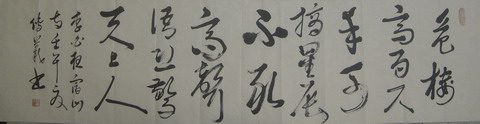 危樓
高百尺
手可
摘星辰
不敢
高聲
語恐驚
天上人
李白夜宿山
寺壬午夏
書